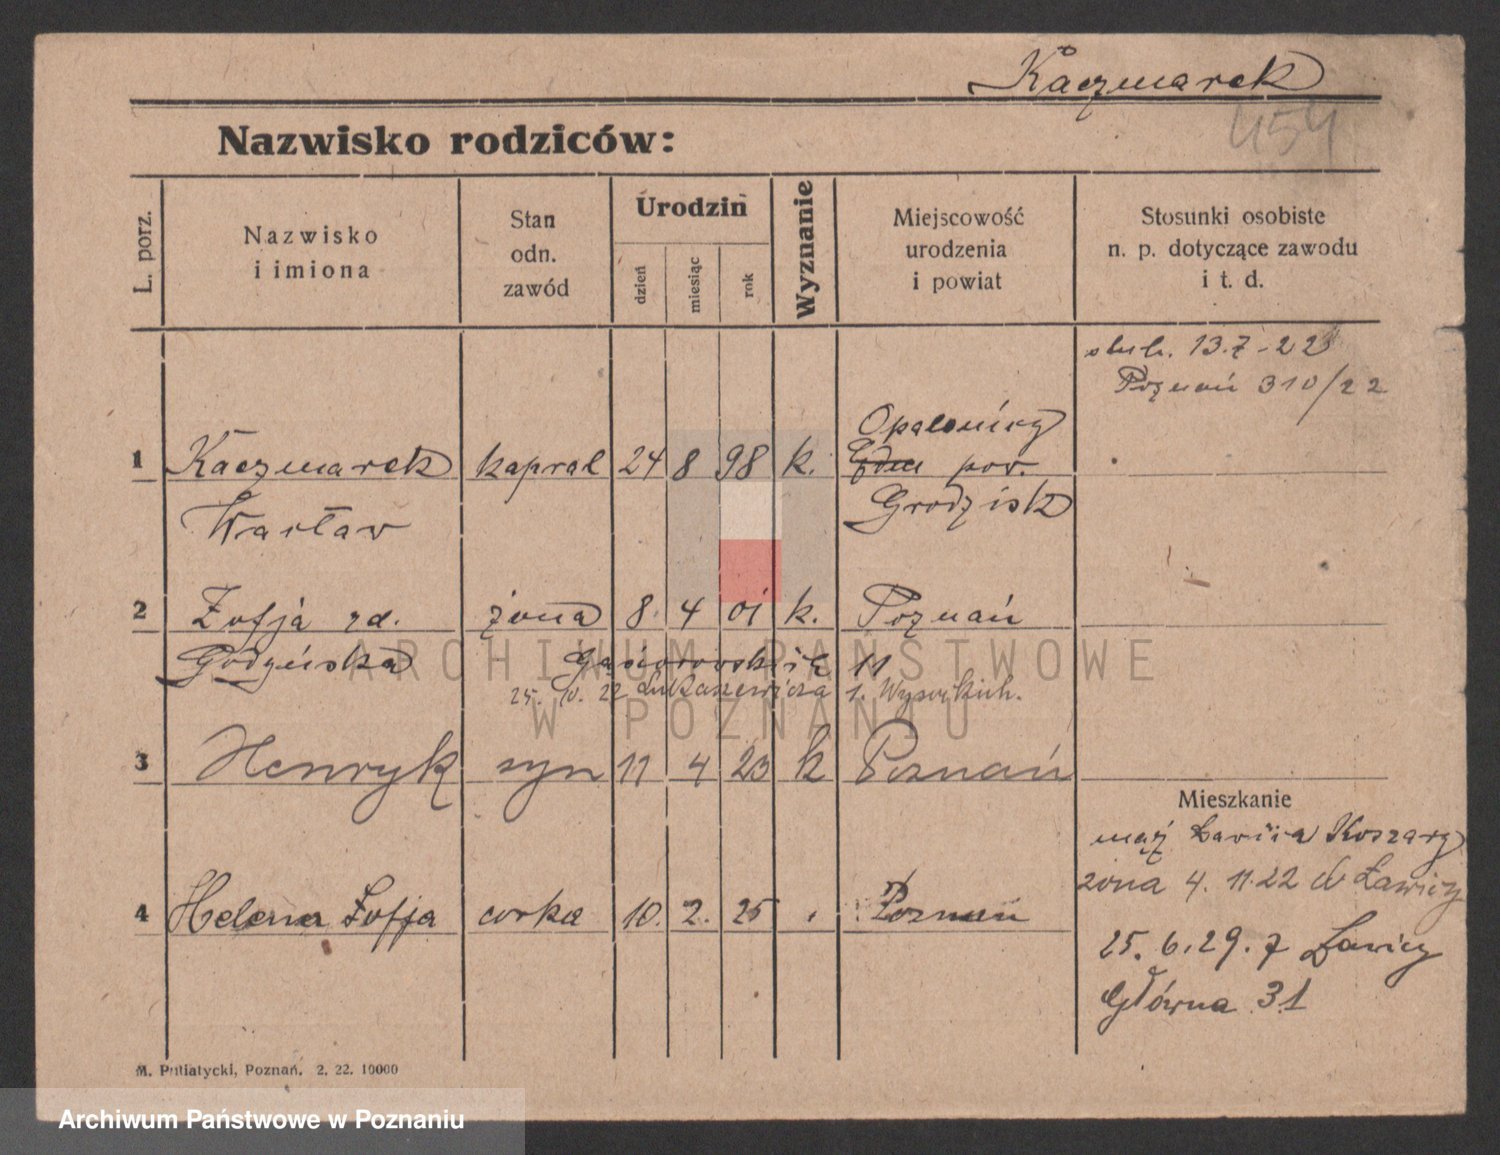 Kaczmarek
454
Nazwisko rodziców:
L. porz.
Nazwisko
i imiona
Stan
odn.
zawód
Urodzin
dzień
miesiąc
rok
Wyznanie
Miejscowość
urodzenia
i powiat
Stosunki osobiste
n. p. dotyczące zawodu
i t. d.
ślub. 13.7-22
Poznań 310/22
Opalenicy
1 Kaczmarek kapral 24 8 98 k. pow.
Wacław Grodzisk
2 Zofja rd. żona 8. 4 01 k. Poznań
Godzińska Gąsiorowskich 11
25. 22 Łukaszewicza 1. Wysockich.
3 Henryk syn 11 4 23 k Poznań
Mieszkanie
mąż Ławica Koszary
żona 4. 11.22 do Ławicy
4 Helena Zofja corka 10. 2. 25 Poznań
25. 6.29. z Ławicy
Główna 31
M. Putiatycki, Poznań. 2. 22. 10000
ARCHIWUM PAŃSTWOWE
W POZNANIU
Archiwum Państwowe w Poznaniu